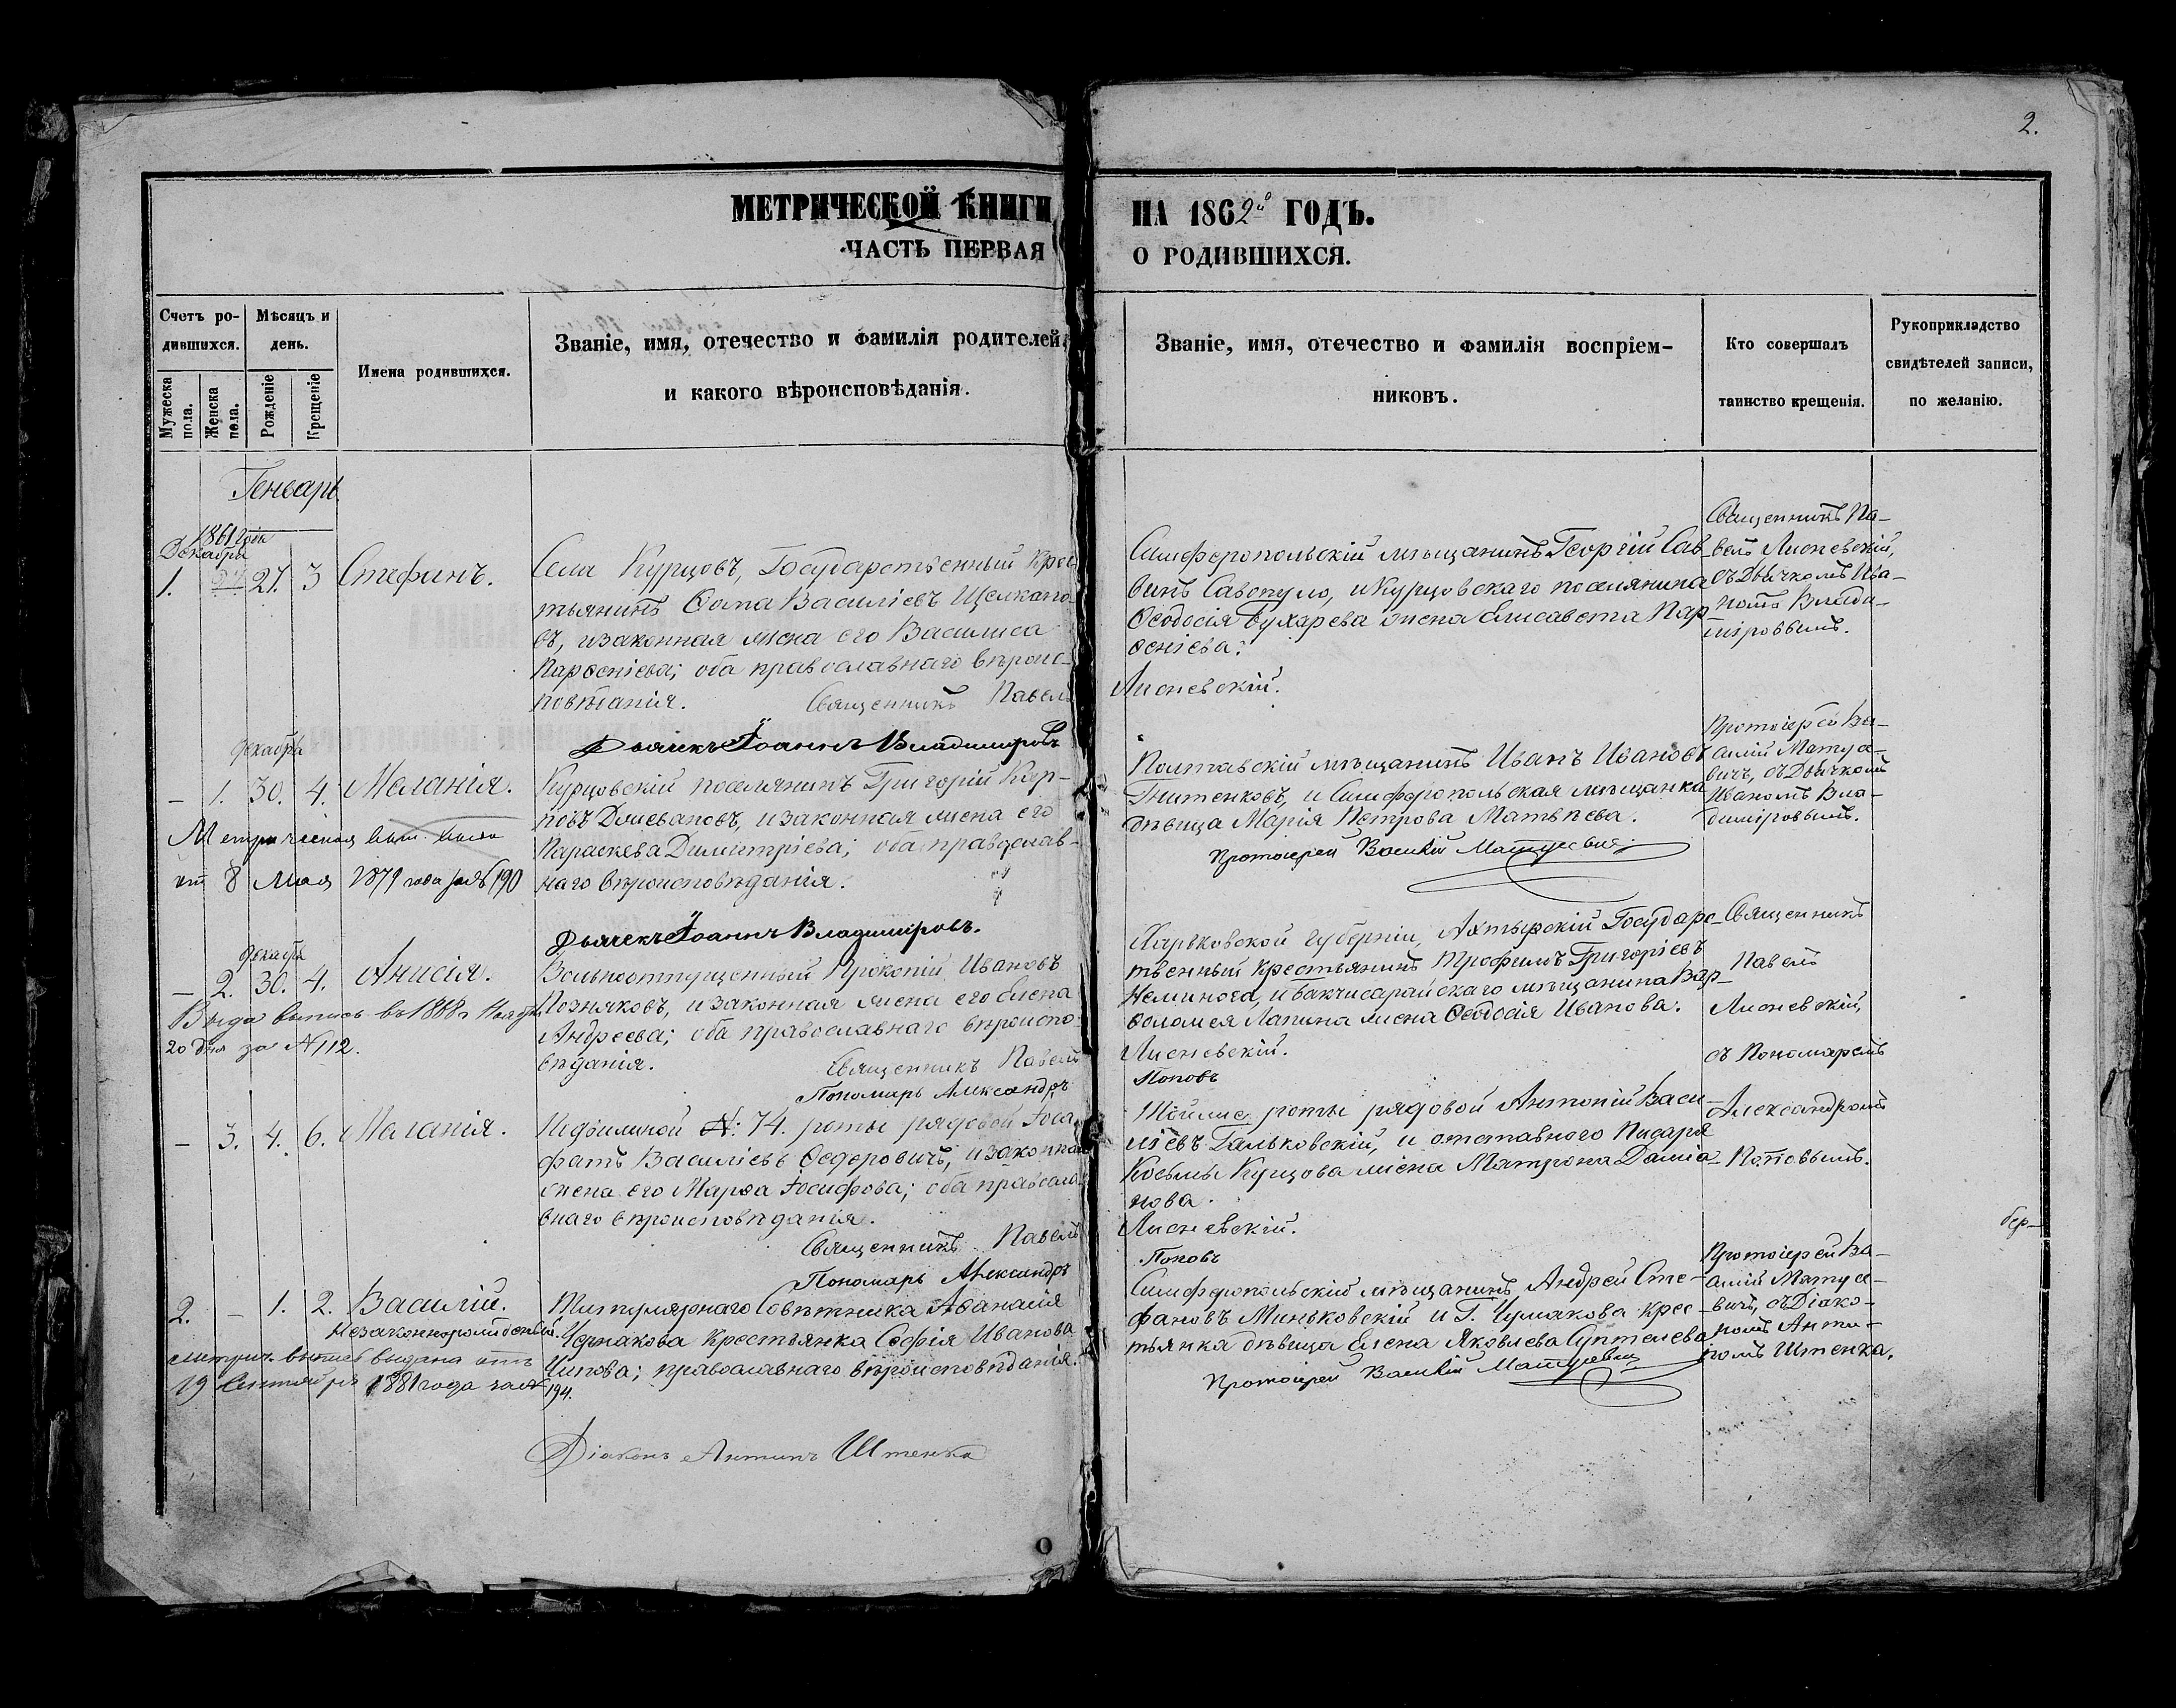 2.
МЕТРИЧЕСКОЙ КНИГИ НА 1862й ГОДЪ.
ЧАСТЬ ПЕРВАЯ О РОДИВШИХСЯ.
Счетъ ро-
дившихся.
Мужеска пола.
Женска пола.
Мѣсяцъ и
день.
Рожденіе
Крещеніе
Имена родившихся.
Званіе, имя, отечество и фамилія родителей,
и какого вѣроисповѣданія.
Званіе, имя, отечество и фамилія воспріем-
никовъ.
Кто совершалъ
таинство крещенія.
Рукоприкладство
свидѣтелей записи,
по желанію.
Генварь
1861 года
Декабря
1. 27. 3 Стефанъ.
Села Курцовъ, Государственный крес
тьянинъ Ѳома Василіевъ Щелкано-
въ, и законная жена его Василиса
Парѳеніева; оба православнаго вѣроис-
повѣданія.
Священникъ Павелъ Лисневскій.
Дьячекъ Іоаннъ Владиміровъ
Симферопольскій мѣщанинъ Георгій Сав
винъ Савопуло, и Курцовскаго поселянина
Ѳеодосія Бухарева жена Елисавета Пар-
ѳеніева.
Священникъ Па-
велъ Лисневскій,
съ Дьячкомъ Ива-
номъ Влади-
міровымъ.
декабря
– 1. 30. 4. Меланія.
Метрическая вып. выдан
от 8 Мая 1879 года за № 190
Курцовскій поселянинъ Григорій Кар-
повъ и законная жена его
Параскева Димитріева; оба православ-
наго вѣроисповѣданія.
Дьячекъ Іоаннъ Владиміровъ.
Полтавскій мѣщанинъ Иванъ Ивановъ
Гнитенковъ, и Симферопольская мѣщанка
дѣвица Марія Петрова Матвѣева.
Протоіерей Василій Матусевич
Протоіерей Ва-
силій Матусе-
вичъ, съ Дьячкомъ
Иваномъ Вла-
диміровымъ.
декабря
– 2. 30. 4. Анисія.
Выда выпись въ 1888 г.
20 дня за № 112.
Вольноотпущенный Прокопій Ивановъ
Позняковъ, и законная жена его Елена
Андреева; оба православнаго вѣроиспо-
вѣданія.
Священникъ Павелъ Лисневскій.
Пономарь Александръ Поповъ
Харьковской губерніи, Ахтырскій Государс-
твенный крестьянинъ Трофимъ Григоріевъ
и Бакчисарайскаго мѣщанина Вар-
ѳоломея Лапина жена Ѳеодосія Иванова.
Священникъ
Павелъ
Лисневскій,
съ Пономаремъ
Александромъ
Поповымъ.
– 3. 4. 6. Меланія.
№: 74. роты рядовой Іоса-
фатъ Василіевъ Ѳедеровичъ, и законная
жена его Марѳа Іосифова; оба правосла-
внаго вѣроисповѣданія.
Священникъ Павелъ Лисневскій.
Пономарь Александръ Поповъ
роты рядовой Антоній Васи-
ліевъ Гальковскій, и отставного писаря
Косьмы Купцова жена Матрона Даміа-
нова.
бер–
2. – 1. 2. Василій.
Незаконнорожденный.
метрич. выпись выдана отъ
19 Сентября 1881 года за № 194.
Титулярнаго Совѣтника Аѳанасія
Чернакова крестьянка Софія Иванова
православнаго вѣроисповѣданія.
Діаконъ Антипъ Штенко
Симферопольскій мѣщанинъ Андрей Сте-
фановъ Миньковскій и Г. Чумакова крес-
тьянка дѣвица Елена Яковлева
Протоіерей Василій Матусевич
Протоіерей Ва-
силій Матусе-
вичъ, съ Діако-
номъ Анти-
помъ Штенка.